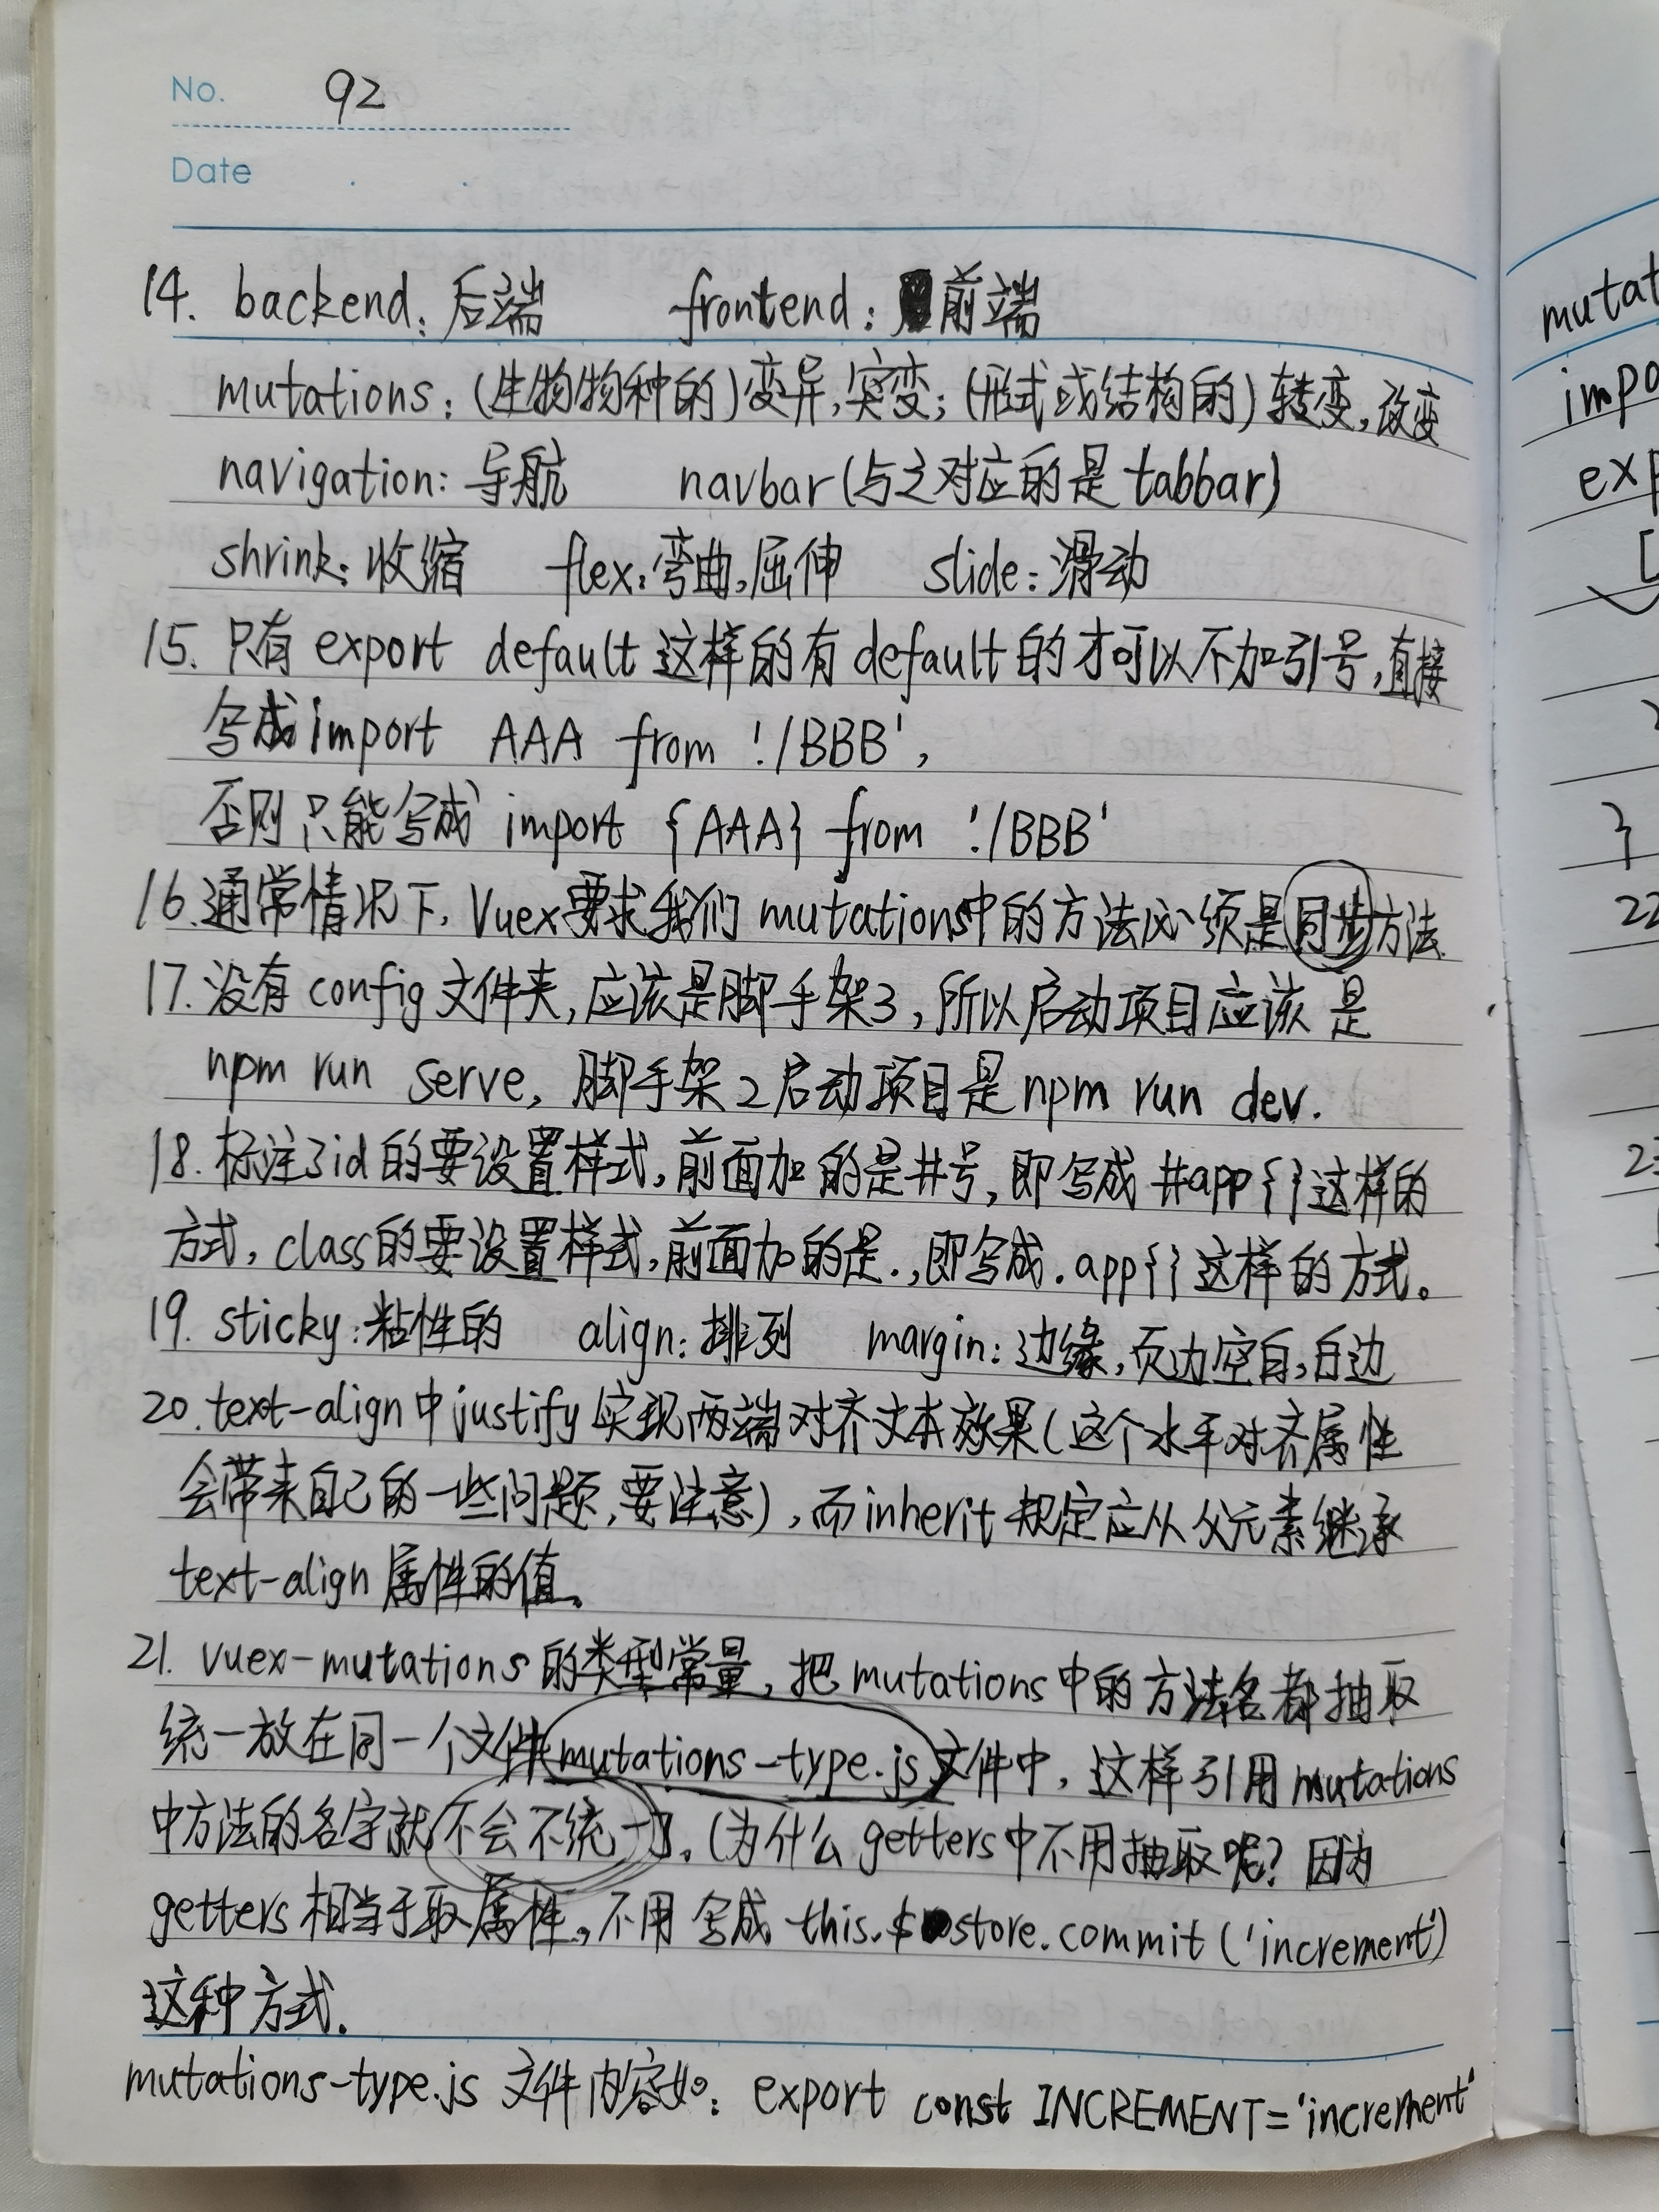 No. 92
Date
14. backend:后端 frontend:前端
mutations:(生物物种的)变异,突变;(形式或结构的)转变,改变
navigation:导航 navbar(与之对应的是tabbar)
shrink:收缩 flex:弯曲,屈伸 slide:滑动
15. 只有 export default 这样的有 default 的才可以不加引号,直接
写成 import AAA from './BBB',
否则只能写成 import {AAA} from './BBB'
16.通常情况下,Vuex要求我们 mutations中的方法必须是同步方法.
17.没有 config 文件夹,应该是脚手架3,所以启动项目应该是
npm run serve, 脚手架2启动项目是npm run dev.
18. 标注了id的要设置样式,前面加的是#号,即写成 #app{}这样的
方式,class的要设置样式,前面加的是.,即写成.app{}这样的方式。
19. sticky:粘性的 align:排列 margin:边缘,页边空白,白边
20.text-align中justify实现两端对齐文本效果(这个水平对齐属性
会带来自己的一些问题,要注意),而inherit规定应从父元素继承
text-align属性的值。
21. vuex-mutations的类型常量,把mutations中的方法名都抽取
统一放在同一个文件mutations-type.js文件中,这样引用mutations
中方法的名字就不会不统一了。(为什么getters中不用抽取呢?因为
getters相当于取属性,不用写成 this.$store.commit('increment')
这种方式.
mutations-type.js 文件内容如: export const INCREMENT='increment'
mutat
impo
exp
[
}
22
23